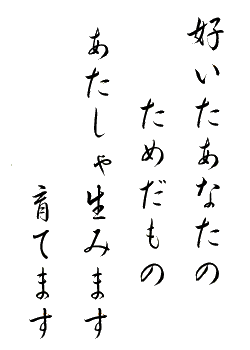 好いたあなたの
ためだもの
あたしゃ生みます
育てます